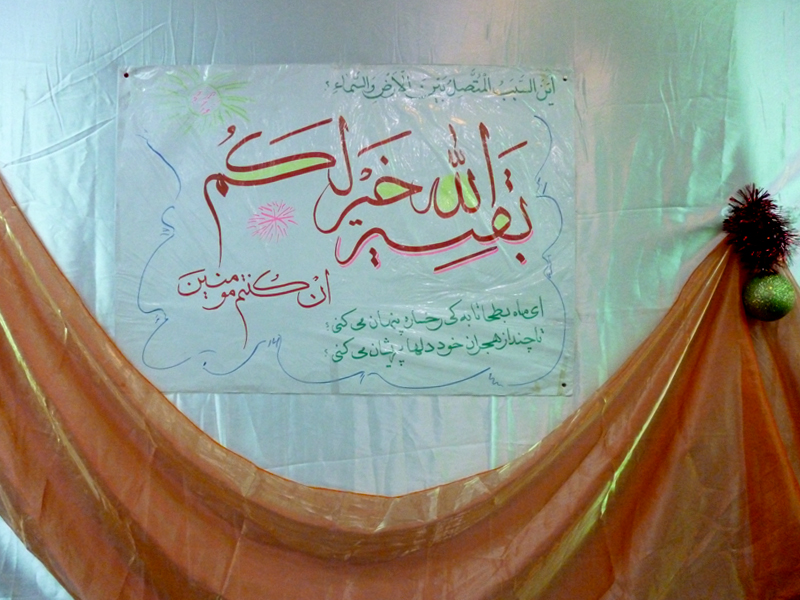 اَیْنَ السَّبَبُ الْمُتَّصِلُ بَیْنَ الْاَرْضِ وَالسَّماءِ؟
بقیة الله خَیْرٌ لَکُمْ
اِنْ کُنْتُم مومنینَ
ای ماه بطحا تا به کی رخساره پنهان می کنی؟
تا چند از هجران خود دلها پریشان می کنی؟